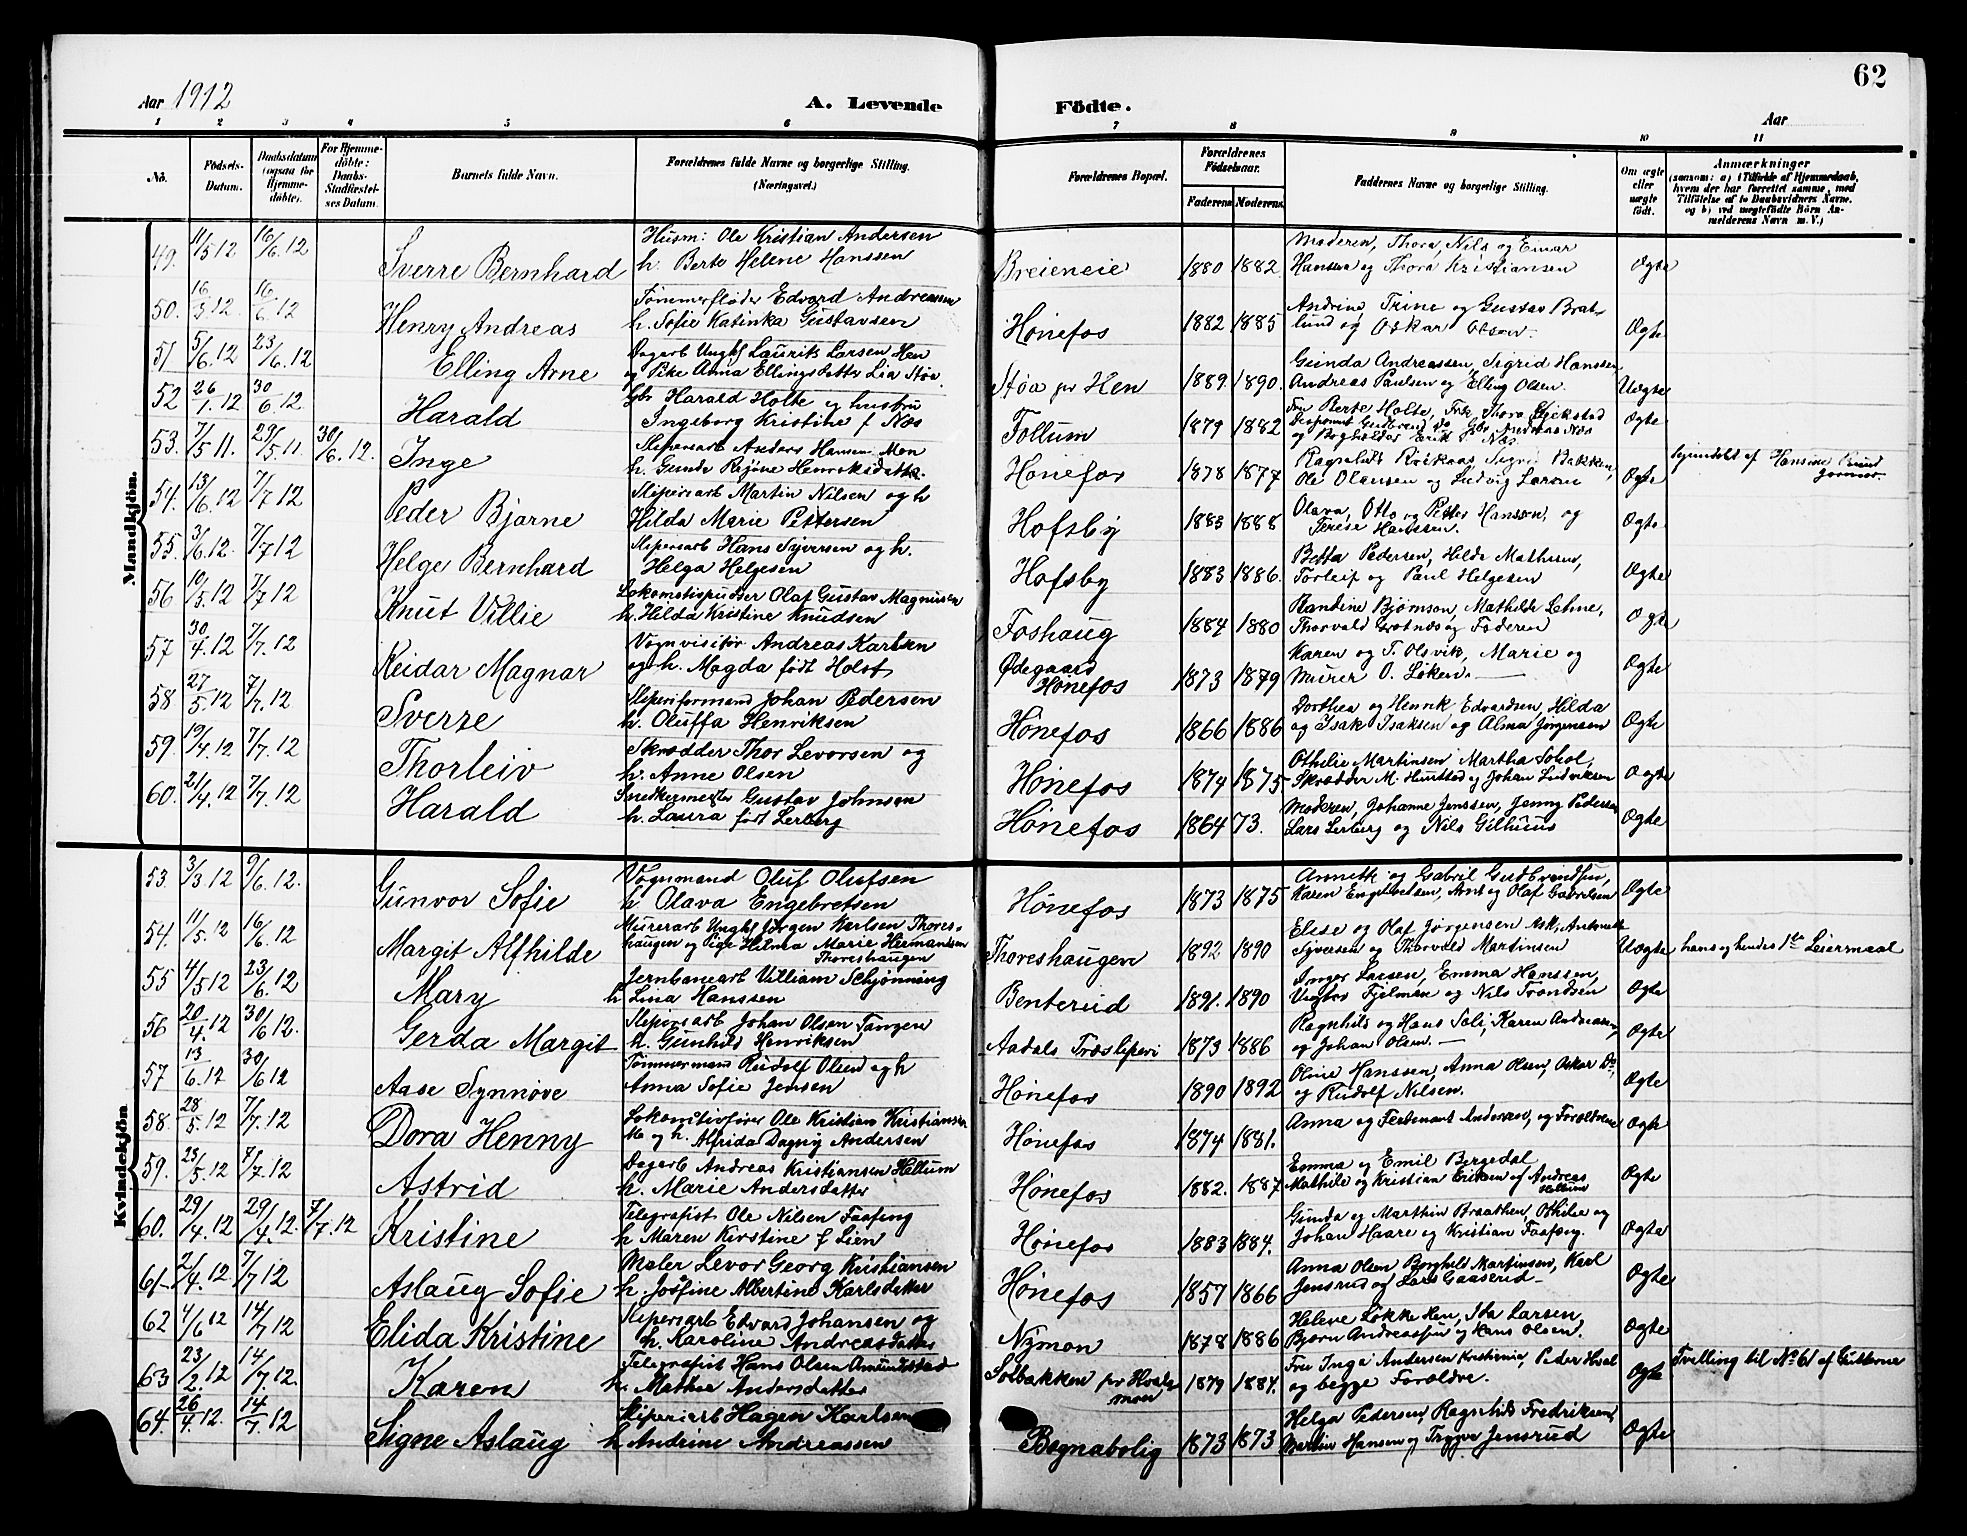 62
Aar 1912
A. Levende Födte.
Aar
1 2 3 4 5 6 7 8 9 10 11
No.
Födsels-Datum.
Daabsdatum (ogsaa for Hjemme-döbte).
For Hjemme-döbte: Daabs-Stadfæstel-ses Datum.
Barnets fulde Navn.
Forældrenes fulde Navne og borgerlige Stilling. (Næringsvei.)
Forældrenes Bopæl.
Forældrenes Födselsaar.
Faderens Moderens.
Faddernes Navne og borgerlige Stilling.
Om ægte eller uægte födt.
Anmærkninger
(saasom: a) i Tilfælde af Hjemmedaab, hvem der har forrettet samme, med Tilföielse af to Daabsvidners Navne, og b) ved uægtefödte Börn An-melderens Navn m. V.)
Mandkjön.
49. 11/5 12 16/6 12 Sverre Bernhard
Husm: Ole Kristian Andersen
h. Berte Helene Hanssen
Breieneie 1880 1882
Moderen, Thora, Nils og Einar
Hansen og Thora Kristiansen
Ægte
50. 16/3 12. 16/6 12 Henry Andreas
Tømmerfløder Edvard Andreassen
h. Sofie Katinka Gustavsen
Hønefos 1882 1885
Andrine, Trine og Gustav Brat-
lund og Oskar Olsen
Ægte
51 5/6. 12 23/6. 12 Elling Arne
Dagarb Ungk Laurits Larsen Hen
og Pike Anna Ellingsdatter Lia Støa.
Støa pr Hen 1889. 1890.
Gunda Andreassen, Sigrid Hanssen
Andreas Paulsen og Elling Olsen.
Uægte
52 26/1. 12 30/6. 12 Harald
Gbr Harald Holte og hustru
Ingeborg Kristine f Næs
Follum 1879 1882
Fru Berte Holte, Frk. Thora
og Bogholder Erik Næs
Ægte
53. 7/5 11. 29/5 11 30/6. 12. Inge
Sliperiarb Anders Hansen Moen
h. Gunda Regine Henriksdatter.
Hønefos 1878 1877
Ole Olausen og Ludvig Larsen
Ægte
hjemdøbt af Hansine
54. 13/6. 12 7/7 12 Peder Bjarne
Sliperiarb Martin Nilsen og h
Hilda Marie Pettersen
Hofsby 1883 1888
Olava, Otto og Peter Hanssen, og
Terese Hanssen.
Ægte
55. 3/6. 12. 7/7 12 Helge Bernhard
Sliperiarb Hans Syversen og h.
Helga Helgesen
Hofsby 1883 1886.
Betta Pedersen, Hilda Mathisen,
Torleif og Paul Helgesen
Ægte
56 10/5. 12 7/7 12 Knut Villie
Lokomotivpudser Olaf Gustav Magnusen
h. Hilda Kristine Knudsen
Foshaug 1884 1880
Randine Bjørnson, Mathilde Lehne,
Thorvald Grøtnæs og Faderen
Ægte
57 30/4. 12 7/7. 12 Reidar Magnar
Vognvisitør Andreas Karlsen
og h. Magda født Holst
Ødegaard Hønefos 1873 1879
Karen og T. Olsvik, Marie og
Murer O. Løken.
Ægte
58 27/5. 12 7/7. 12 Sverre
Sliperiformand Johan Pedersen
h. Oluffa Henriksen
Hønefos 1866 1886
Dorthea og Henrik Edvardsen, Hilda
og Isak Isaksen og Alma Jørgensen
Ægte
59. 19/4. 12 7/7. 12 Thorleiv
Skrædder Thor Levorsen og
h. Anne Olsen
Hønefos 1874 1875
Othilie Martinsen Martha Sohol,
Skrædder M. Hunstad og Johan Ludviksen
Ægte
60. 21/4. 12 7/7. 12 Harald
Snedkermester Gustav Johnsen
h. Laura født Lerberg
Hønefos 1864 73.
Moderen, Johanne Jenssen, Jenny Pedersen
Lars Lerberg og Nils Gilhuus
Ægte
Kvindekjön
53. 3/3. 12 9/6. 12. Gunvor Sofie
Vognmand Oluf Olufsen
h. Olava Engebretsen
Hønefos 1873 1875
Anneth og Gabriel Gudbrandsen,
Karen Engebretsen, Ant og Olaf Gabrielsen
Ægte
54. 11/5. 12 16/6. 12 Margit Alfhilde
Murerarb Ungk Jørgen Karlsen Thores-
haugen og Pige Helma Marie Hermansen
Thoreshaugen
Thoreshaugen 1892 1890
Elise og Olaf Jørgensen Ask, Antonette
Syversen og Thorvald Martinsen
Uægte hans og hendes 1ste Leiermaal
55 4/5 12 23/6. 12 Mary
Jernbanearb Villiam Schjønning
h Lina Hanssen
Benterud 1891. 1890
Inger Larsen, Emma Hanssen,
Viktor Fjelman og Nils Trondsen
Ægte
56 20/4. 12 30/6 12. Gerda Margit
Sliperiarb Johan Olsen Tangen
h. Gunhild Henriksen
Aadals Træsliperi 1873 1886
Ragnhild og Hans Soli, Karen Andreassen
og Johan Olsen.
Ægte
57 13/6. 12 30/6 12 Aase Synnøve
Tømmermand Rudolf Olsen og h
Anna Sofie Jensen
Hønefos 1890 1892
Oline Hanssen, Anna Olsen, Oskar Do,
og Rudolf Nilsen.
Ægte
58. 28/5. 12 7/7. 12 Dora Henny
Lokomotivfører Ole Kristian Kristiansen
Mo og h. Alfrida Dagny Andersen
Hønefos 1874 1881.
Anna og Ferdinant Andersen, og Forældrene
Ægte
59. 25/5. 12 7/7. 12 Astrid
Dagarb Andreas Kristiansen Hellum
h. Marie Andersdatter
Hønefos 1882. 1887
Emma og Emil Bergedal
Mathilde og Kristian Eriksen af Andreas Hellum
Ægte
60. 29/4. 12 29/4. 12. 7/7. 12 Kristine
Telegrafist Ole Nilsen Faafeng
h Maren Kirstine f Lien
Hønefos 1883 1884.
Gunda og Marthin Braathen, Othilie og
Johan Haare og Kristian Faafeng.
Ægte
61 21/4. 12 7/7 12 Aslaug Sofie
Maler Levor Georg Kristiansen
h. Josfine Albertine Karlsdatter
Hønefos 1857 1866
Anna Olsen Borghild Martinsen, Karl
Jensrud og Lars Gaaserud
Ægte
62 4/6 12 14/7 12 Elida Kristine
Sliperiarb Edvard Johansen og
h. Karoline Andreasdatter
Nymon 1878 1886
Helene Løkke Hen, Ida Larsen,
Bjørn Andreassen og Hans Olsen.
Ægte
63 23/2. 12 14/7. 12. Karen
Telegrafist Hans Olsen Amundstad
h. Mathea Andersdatter
Solbakken pr Hvals-
moen 1879 1884.
Fru Inga Andersen Kristiania, Peder Hval
og begge Forældre.
Ægte Tvilling til No 61 af Gutterne
64. 26/4. 12. 14/7. 12 Signe Aslaug
Sliperiarb Hagen Karlsen
h Andrine Andreassen
Bægnabolig 1873 1873
Helga Pedersen, Ragnhild Fredriksen,
Martin Hansen og Trygve Jensrud
Ægte